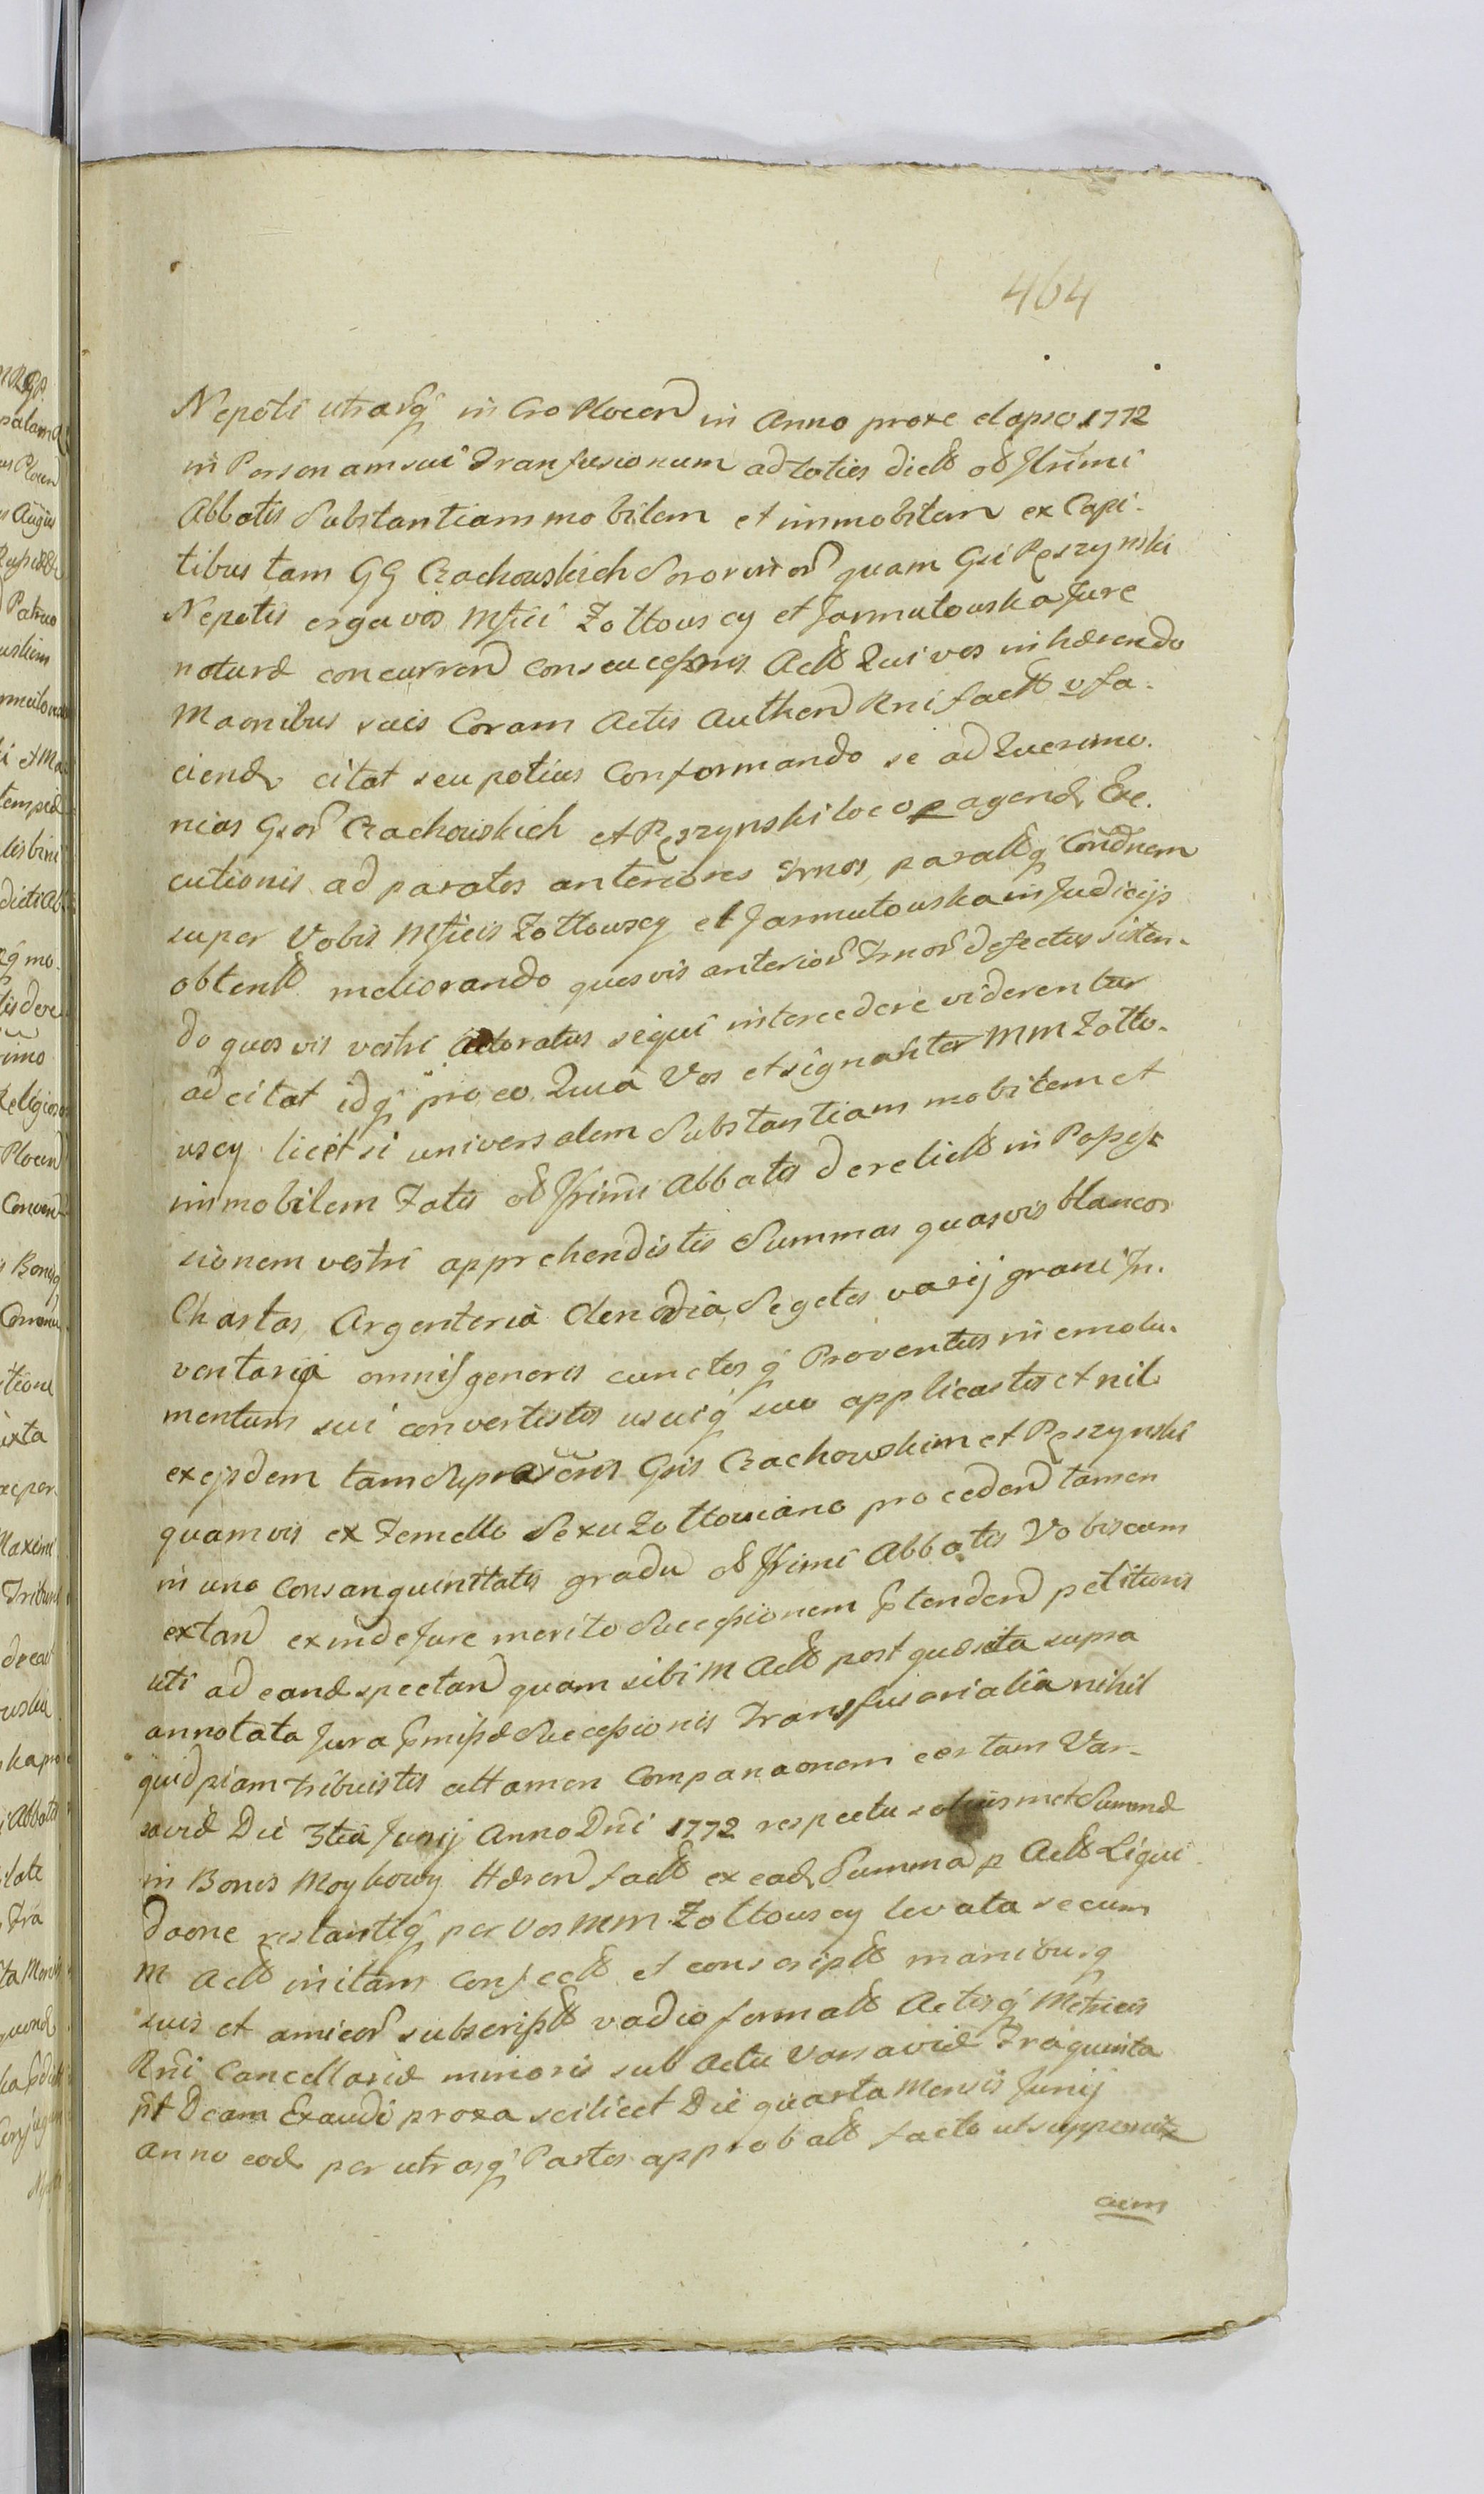 464
Nepoti utrasq̃ in Cro Plocen in Anno proxe elapso 1772
in Personam sui Transfusionum ad toties dictt ol Jllrimi
Abbatis Substantiam mobilem et immobilem ex Capi-
tibus tam GG Czachowskich Sororinor quam Gsi Pęszynski
Nepotis erga vos Mfici Żołtowscy et Jarmułowska Jure
naturæ concurren Actt Qui vos inhærendo
Maonibus suis Coram Actis Authen Rni factt v fa-
ciend citat seu potius Conformando se ad Querimo-
nias Gsor Czachowskich et Pęszynski loco p agend Exe-
cutionis ad paratos anteriores Trnos, paratt q̃ Condnem
super Vobis Mficis Żołtowscy et Jarmułowska in Judicijs
obtentt meliorando quosvis anterior Trnor defectus sisten-
do quosvis vestri Actoratus siqui intercedere viderentur
adcitat idq̃ pro eo Quia Vos et signanter MM Żołto-
wscy licet si universalem Substantiam mobilem et
immobilem Fatis ol Jllrimi Abbatis derelictt in Posses-
sionem vestri apprehendistis Summas quasvis blancos
Chartas, Argenteria Clenodia, Segetes varij grani In-
ventaria omnis generis cunctos q̃ Proventus in emolu-
mentum sui convertistis usuiq̃ suo applicastis et nil
ex ejsdem tam Gsis Czachowskim et Pęszynski
quamvis ex Femello Sexu Żołtoviano proceden tamen
in uno Consanguinitatis gradu ol Jllrimi Abbatis Vobiscum
extan exinde Jure merito Successionem ptenden petituris
uti ad eand spectan quam sibi M Actt post quæsita supra
annotata Jura pmissæ Successionis Transfusorialia nihil
quidpiam tribuistis attamen Companaonem certam Var-
saviæ Die 3tia Junij Anno Dni 1772 respectu soliusmet Summæ
in Bonis Moykowy Hæren factt ex ead Summa p Actt Liqui-
daone restantiq̃ per Vos MM Żołtowscy levata secum
M Actt initam Confectt et conscriptt manibusq̃
suis et amicor subscriptt vadio formatt Actisq̃ Metricis
Rni Cancellariæ minoris sub Actu Varsaviæ Fra quinta
pt Dcam Exaudi proxa scilicet Die quarta Mensis Junij
anno eod per utrasq̃ Partes approbatt facto
aem